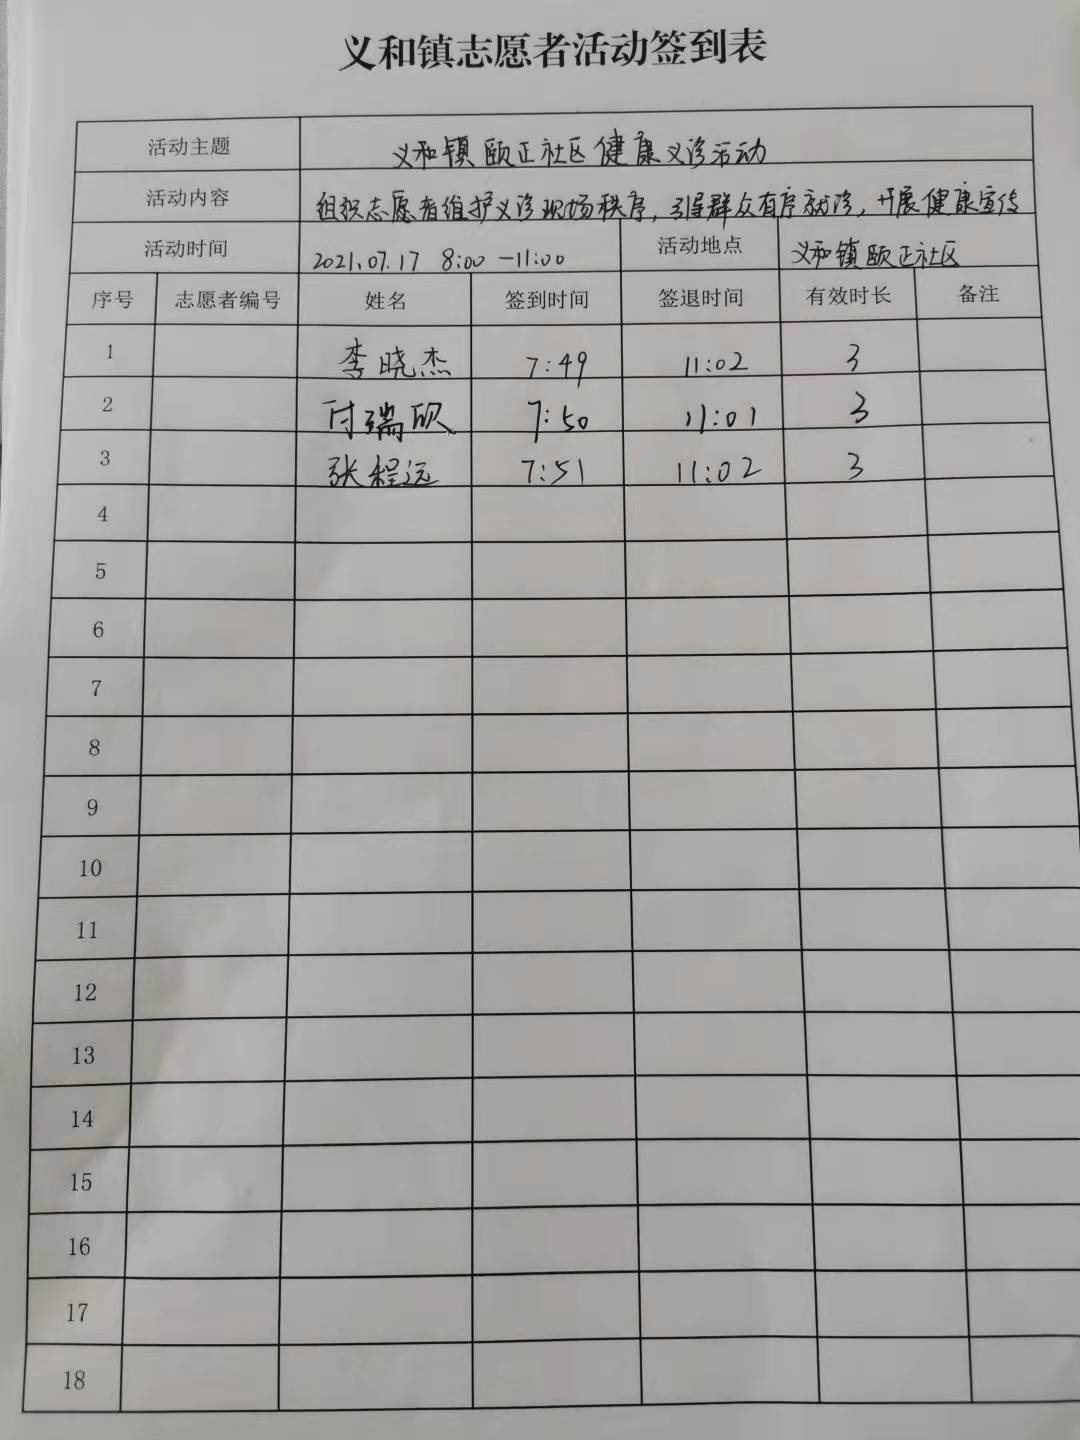 义和镇志愿者活动签到表
活动主题 义和镇颐正社区健康义诊活动
活动内容 组织志愿者维护义诊现场秩序，引导群众有序就诊，开展健康宣传
活动时间 2021.07.17 8:00-11:00 活动地点 义和镇颐正社区
序号 志愿者编号 姓名 签到时间 签退时间 有效时长 备注
1 李晓杰 7:49 11:02 3
2 付瑞欣 7:50 11:01 3
3 张程远 7:51 11:02 3
4
5
6
7
8
9
10
11
12
13
14
15
16
17
18